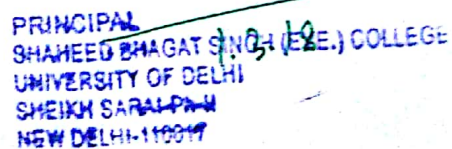 PRINCIPAL
SHAHEED BHAGAT SINGH (EVE.) COLLEGE
1.3.18
UNIVERSITY OF DELHI
SHEIKH SARAI PH-II
NEW DELHI-110017